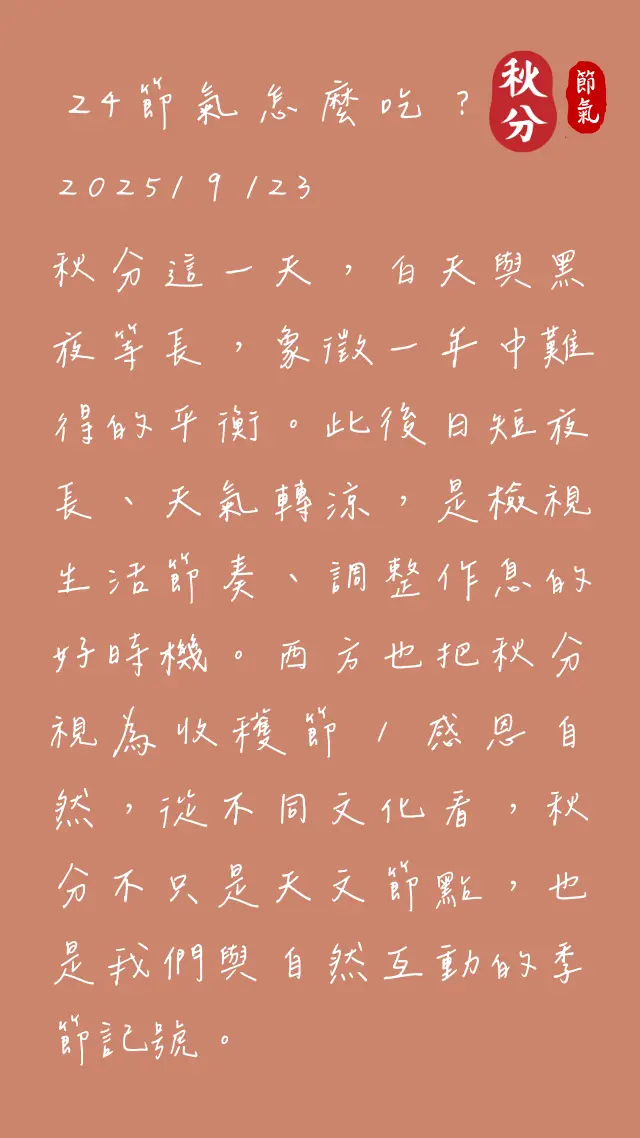 24節氣怎麼吃？
秋分
節氣
2025/9/23
秋分這一天，白天與黑
夜等長，象徵一年中難
得的平衡。此後日短夜
長、天氣轉涼，是檢視
生活節奏、調整作息的
好時機。西方也把秋分
視為收穫節/感恩自
然，從不同文化看，秋
分不只是天文節點，也
是我們與自然互動的季
節記號。